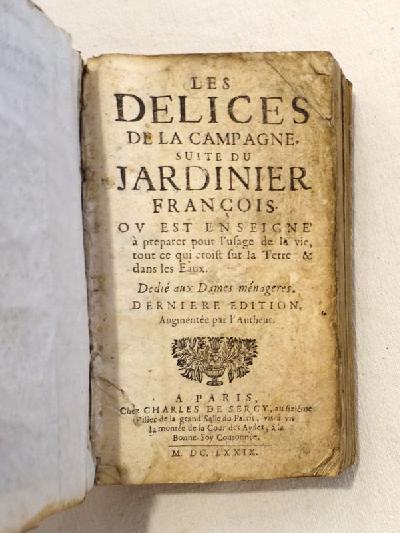 LES
DELICES
DE LA CAMPAGNE.
SUITE DU
JARDINIER
FRANÇOIS.
OV EST ENSEIGNE'
à preparer pour l'usage de la vie,
tout ce qui croist sur la Terre &
dans les Eaux.
Dedié aux Dames ménageres.
DERNIERE EDITION,
Augmentée par l'Autheur.
A PARIS,
Chez CHARLES DE SERCY, au sixiéme
Pilier de la grand' Salle du Palais, vis à vis
la montée de la Cour des Aydes, à la
Bonne-Foy Couronnée.
M. DC. LXXIX.